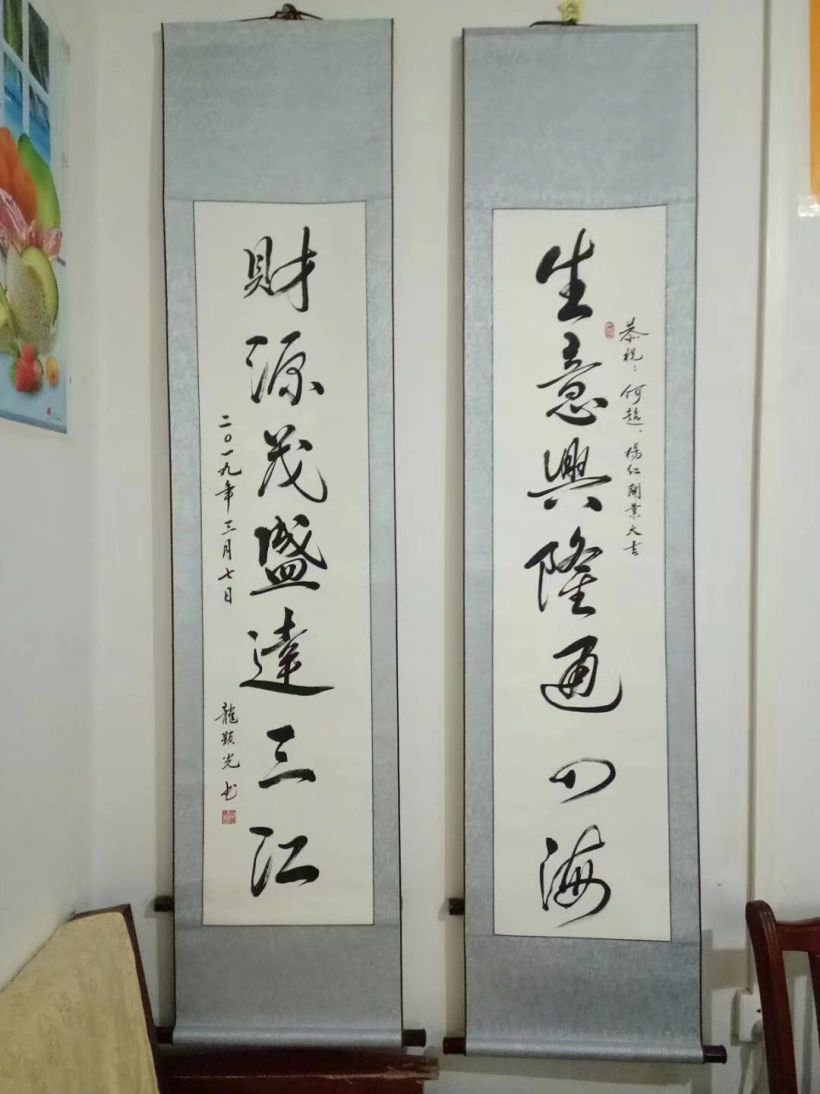 恭祝：何超、楊红開業大吉
生意興隆通四海
財源茂盛達三江
二〇一九年三月七日
龍 光书